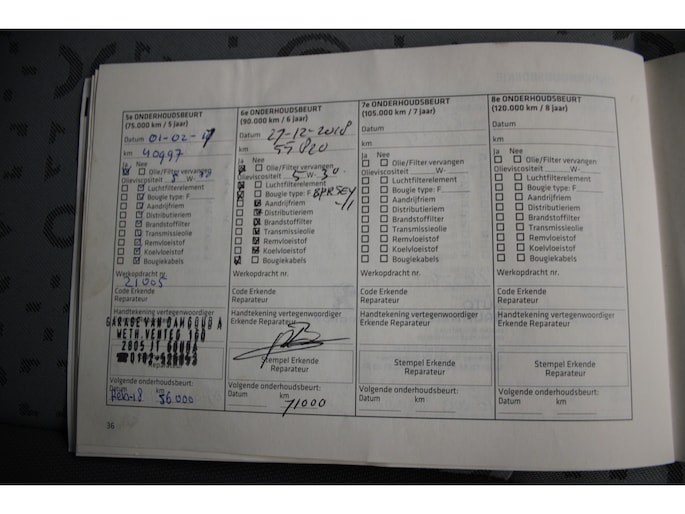 5e ONDERHOUDSBEURT
(75.000 km / 5 jaar)
Datum 01-02-17
km 40997
Ja Nee
Olie/Filter vervangen
Olieviscositeit W-
Luchtfilterelement
Bougie type: F
Aandrijfriem
Distributieriem
Brandstoffilter
Transmissieolie
Remvloeistof
Koelvloeistof
Bougiekabels
Werkopdracht nr.
21005
Code Erkende
Reparateur
Handtekening vertegenwoordiger
GARAGE VAN
2805 GOUDA
Reparateur
Volgende onderhoudsbeurt:
Datum km
Feb-18 56.000
6e ONDERHOUDSBEURT
(90.000 km / 6 jaar)
Datum 27-12-2018
km 55820
Ja Nee
Olie/Filter vervangen
Olieviscositeit 5 W- 30
Luchtfilterelement
Bougie type: F
Aandrijfriem
Distributieriem
Brandstoffilter
Transmissieolie
Remvloeistof
Koelvloeistof
Bougiekabels
Werkopdracht nr.
Code Erkende
Reparateur
Handtekening vertegenwoordiger
Erkende Reparateur
Stempel Erkende
Reparateur
Volgende onderhoudsbeurt:
Datum km
71000
7e ONDERHOUDSBEURT
(105.000 km / 7 jaar)
Datum
km
Ja Nee
Olie/Filter vervangen
Olieviscositeit W-
Luchtfilterelement
Bougie type: F
Aandrijfriem
Distributieriem
Brandstoffilter
Transmissieolie
Remvloeistof
Koelvloeistof
Bougiekabels
Werkopdracht nr.
Code Erkende
Reparateur
Handtekening vertegenwoordiger
Erkende Reparateur
Stempel Erkende
Reparateur
Volgende onderhoudsbeurt:
Datum km
8e ONDERHOUDSBEURT
(120.000 km / 8 jaar)
Datum
km
Ja Nee
Olie/Filter vervangen
Olieviscositeit W-
Luchtfilterelement
Bougie type: F
Aandrijfriem
Distributieriem
Brandstoffilter
Transmissieolie
Remvloeistof
Koelvloeistof
Bougiekabels
Werkopdracht nr.
Code Erkende
Reparateur
Handtekening vertegenwoordiger
Erkende Reparateur
Stempel Erkende
Reparateur
Volgende onderhoudsbeurt:
Datum km
36